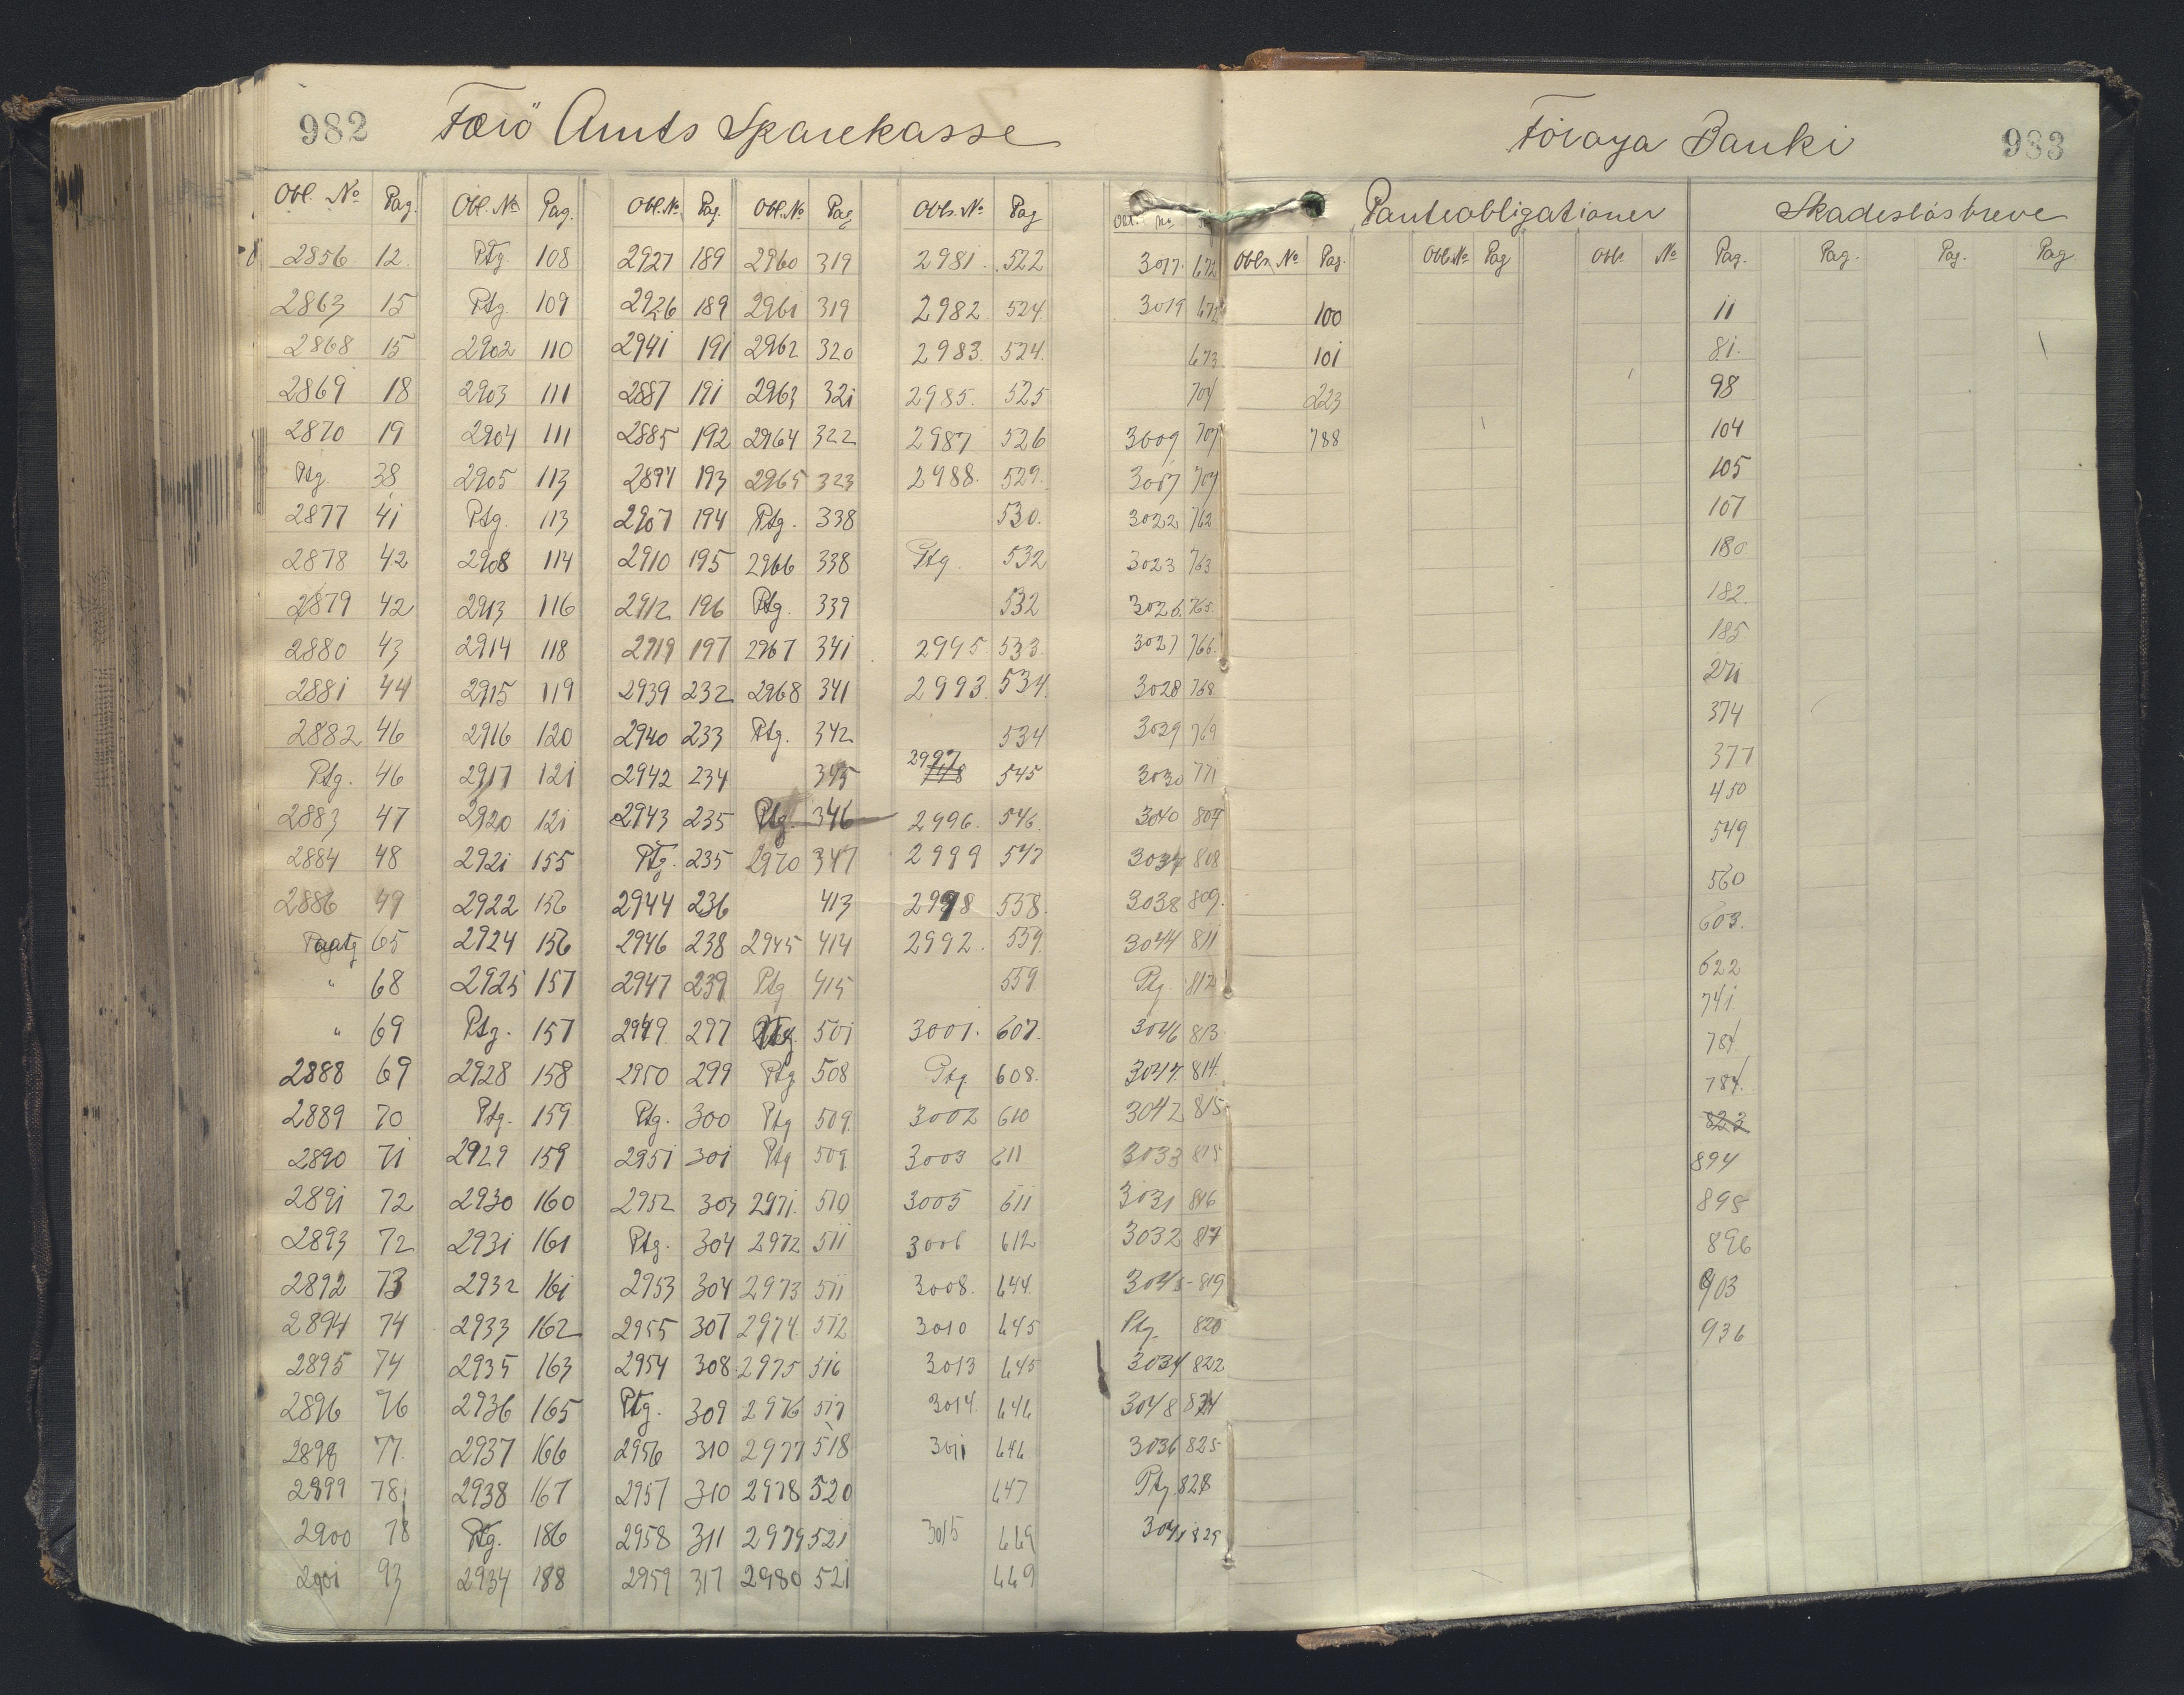 982 Færö Amts Sparekasse
Obl. No Pag. Obl. No Pag. Obl. No Pag. Obl. No Pag Obls. No Pag Obl. No
2856 12 Ptg. 108 2927 189 2960 319 2981 522 3017 672
2863 15 Ptg. 109 2926 189 2961 319 2982 524 3019 672
2868 15 2902 110 2941 191 2962 320 2983 524 673
2869 18 2903 111 2887 191 2963 321 2985 525 704
2870 19 2904 111 2885 192 2964 322 2987 526 3009 707
Ptg. 38 2905 113 2894 193 2965 323 2988 529 709
2877 41 Ptg. 113 2907 194 Ptg. 338 530 3022 762
2878 42 2908 114 2910 195 2966 338 Ptg. 532 3023 763
2879 42 2913 116 2912 196 Ptg. 339 532 3026 765
2880 43 2914 118 2919 197 2967 341 2995 533 3027 766
2881 44 2915 119 2939 232 2968 341 2993 534 3028 768
2882 46 2916 120 2940 233 Ptg. 342 534 3029 769
Ptg. 46 2917 121 2942 234 345 2997 545 3030 771
2883 47 2920 121 2943 235 Ptg. 346 2996 546 3040 807
2884 48 2921 155 Ptg. 235 2970 347 2999 547 3037 808
2886 49 2922 156 2944 236 413 2998 558 3038 809
65 2924 156 2946 238 2945 414 2992 559 3044 811
" 68 2925 157 2947 239 Ptg 415 559 Ptg. 812
" 69 Ptg. 157 2949 297 Ptg. 501 3001 607 3046 813
2888 69 2928 158 2950 299 Ptg 508 Ptg. 608 3047 814
2889 70 Ptg. 159 Ptg. 300 Ptg 509 3002 610 3042 815
2890 71 2929 159 2951 301 Ptg 509 3003 611 3033 815
2891 72 2930 160 2952 303 2971 510 3005 611 3031 816
2893 72 2931 161 Ptg. 304 2972 511 3006 612 3032 817
2892 73 2932 161 2953 304 2973 511 3008 644 3045 819
2894 74 2933 162 2955 307 2974 512 3010 645 Ptg. 820
2895 74 2935 163 2954 308 2975 516 3013 645 3034 822
2896 76 2936 165 Ptg. 309 2976 517 3014 646 3048 824
2898 77 2937 166 2956 310 2977 518 3011 646 3036 825
2899 78 2938 167 2957 310 2978 520 647 Ptg 828
2900 78 Ptg. 186 2958 311 2979 521 3015 649 3041 829
2901 93 2934 188 2959 317 2980 521 649
Föroya Banki 983
Panteobligationer Skadeslösbreve
Obls. No Pag. Obl. No Pag Obl. No Pag. Pag. Pag. Pag
100 11
101 81
223 98
788 104
105
107
180
182
185
271
374
377
450
549
560
603
622
741
784
784
823
894
895
896
903
936